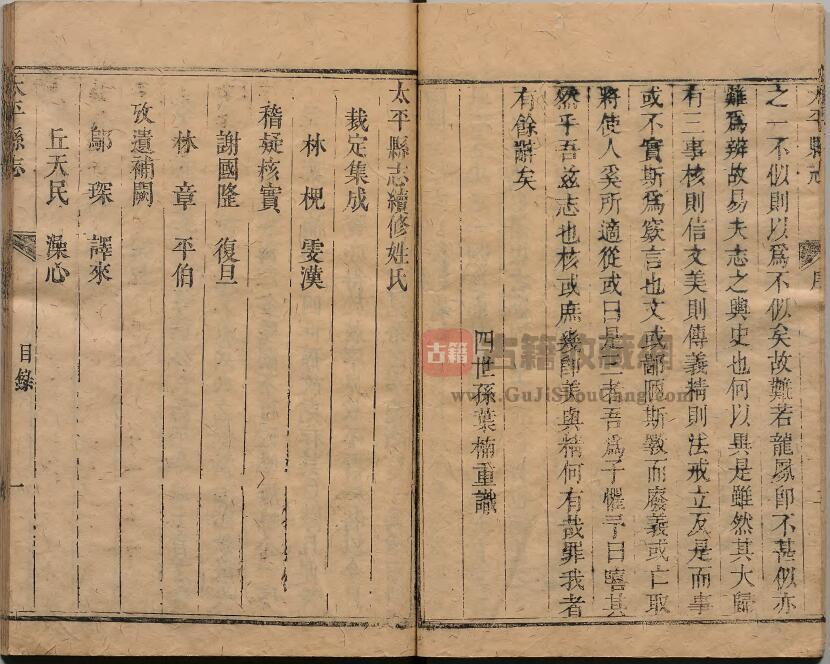 太平縣志
序
二
之一不似則以爲不似矣故難若龍鳳卽不甚似亦
難爲辨故易夫志之與史也何以異是雖然其大歸
有三事核則信文美則傳義精則法戒立反是而事
或不實斯爲窾言也文或鄙陋斯斁而廢義或亡取
將使人奚所適從或曰是三者吾爲子懼予曰嘻其
然乎吾兹志也核或庶幾卽美與精何有哉罪我者
有餘辭矣
四世孫葉楠重識
太平縣志續修姓氏
裁定集成
林 棍 雯漢
稽疑核實
謝國隆 復旦
林 章 平伯
攷遺補闕
鄔 琛 譯來
丘天民 澡心
太平縣志
目錄
一
古籍
古籍收藏網
www.GuJiShouCang.com